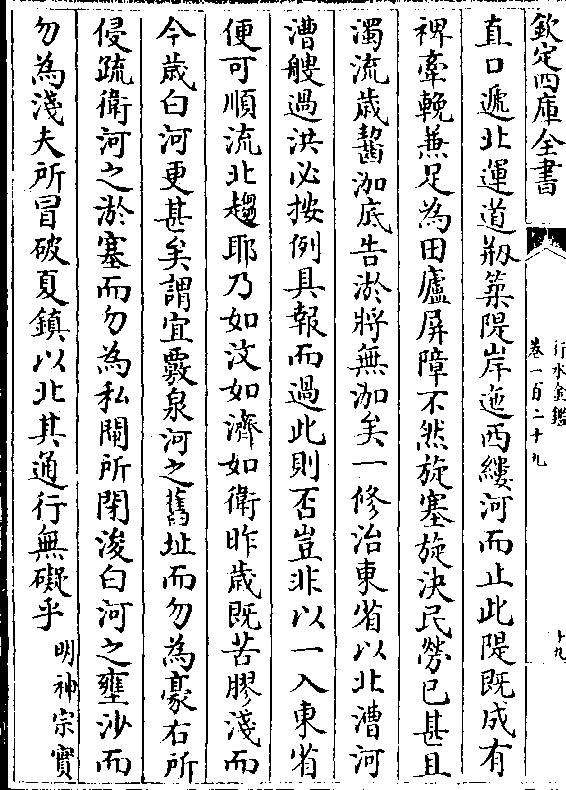 欽定四庫全書
行水金鑑
卷一百二十九
十九
直口遞北運道剏築隄岸迤西縷河而止此隄既成有
裨牽輓兼足為田廬屏障不然旋塞旋決民勞已甚且
濁流歲齧泇底告淤將無泇矣一修治東省以北漕河
漕艘過洪必按例具報而過此則否豈非以一入東省
便可順流北趨耶乃如汶如濟如衛昨歲既苦膠淺而
今歲白河更甚矣謂宜覈泉河之舊址而勿為豪右所
侵疏衛河之淤塞而勿為私閘所閉浚白河之壅沙而
勿為淺夫所冒破夏鎮以北其通行無礙乎明神宗實